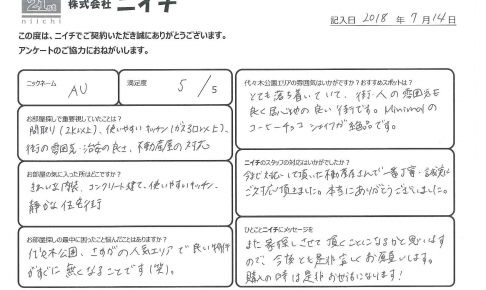 21st
niichi
株式会社 ニイチ
記入日 2018 年 7月 14日
この度は、ニイチでご契約いただき誠にありがとうございます。
アンケートのご協力におねがいします。
ニックネーム AU
満足度 5 / 5
お部屋探しで重要視していたことは?
間取り(2K以上)、使いやすいキッチン(ガス3口以上)、
街の雰囲気・治安の良さ、不動産屋の対応
お部屋の気に入った所はどこですか?
きれいな内装、コンクリート建て、使いやすいキッチン、
静かな住宅街
お部屋探しの最中に困ったこと悩んだことはありますか?
代々木公園、さすがの人気エリアで良い物件
がすぐに無くなることです(笑)。
代々木公園エリアの雰囲気はいかがですか?おすすめスポットは?
とても落ち着いていて、街・人の雰囲気も
良く居心地の良い街です。Minimalの
コーヒーチョコ シェイクが絶品です。
ニイチのスタッフの対応はいかがでしたか?
今まで対応して頂いた不動産さんで一番丁寧・
ご対応頂きました。本当にありがとうございました。
ひとことニイチにメッセージを
また家探しさせて頂くことになるかと思いますの
ので、今後とも是非宜しくお願いします。
購入の時は是非おせわになります!